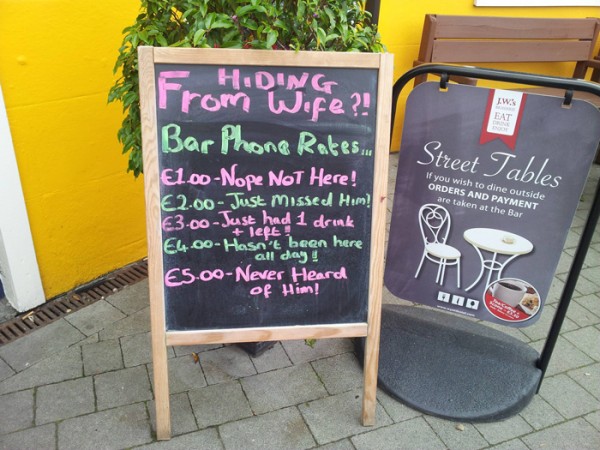 HIDING
From Wife?!
Bar Phone Rates...
€1.00-Nope NOT Here!
€2.00-Just Missed Him!
€3.00-Just had 1 drink
+ left!
€4.00-Hasn't been here
all day!!
€5.00-Never Heard
of Him!
J.W.'s
EAT
DRINK
ENJOY
Street Tables
If you wish to dine outside
ORDERS AND PAYMENT
are taken at the Bar